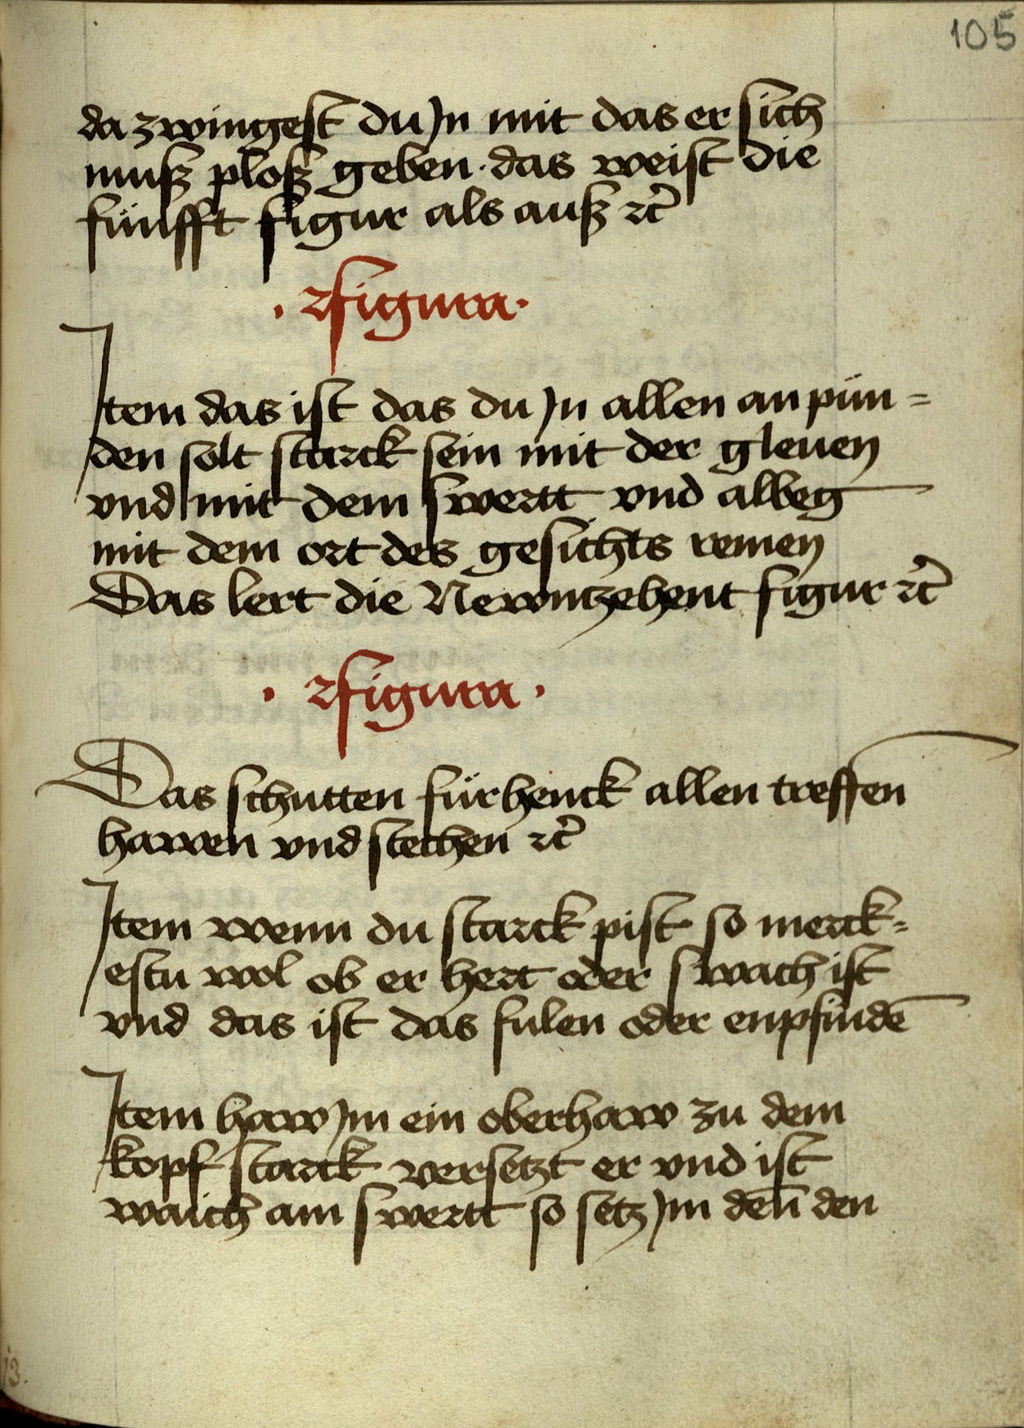 105
da zwingest du Jn mit das er sich
muß ploß geben · das weist die
fünfft figur als auß ꝛc̃
· 2 figura ·
Item das ist das du Jn allen an pün =
den solt starck sein mit der gleuen
vnd mit dem swertt vnd albeg
mit dem ort des gesichts remen
Das lert die Newntzehent figur ꝛc̃
· 2 figura ·
Das schutten für henck allen treffen
hawen vnd stechen ꝛc̃
Item wenn du starck pist so merck =
estu wol ob er hert oder swach ist
vnd das ist das fulen oder enpfindē
Item haw Jm ein oberhaw zu dem
kopf starck versetzt er vnd ist
waich am swertt so setz Jm deñ den